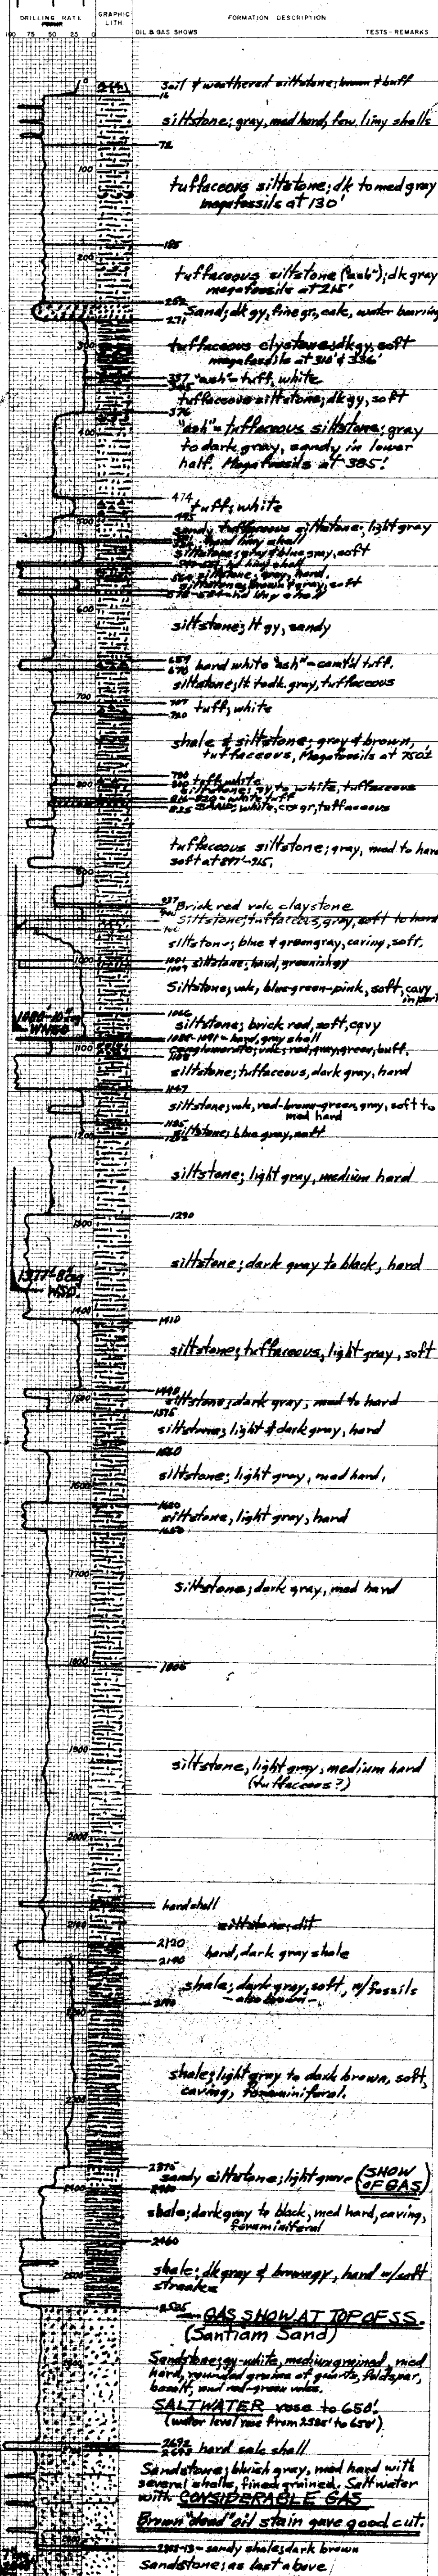 DRILLING RATE
GRAPHIC
LITH.
OIL & GAS SHOWS
FORMATION DESCRIPTION
TESTS - REMARKS
100 75 50 25 0
0
Soil & weathered siltstone; brown & buff
16
siltstone; gray, med hard, few limy shells
72
100
tuffaceous siltstone; dk to med gray
megafossils at 130'
185
200
tuffaceous siltstone ("ash"); dk gray
megafossils at 215'
252
Sand; dk gy, fine gr, calc, water bearing
271
300
tuffaceous clystone; dk gy, soft
megafossils at 310' & 336'
337 "ash" = tuff, white
345
tuffaceous siltstone; dk gy, soft
376
400
"ash" = tuffaceous siltstone; gray
to dark gray, sandy in lower
half. Megafossils at 385'.
474
tuff; white
495
500
sandy tuffaceous siltstone; light gray
hard limy shell
siltstone; gray & blue gray, soft
hd limy shell
siltstone; gray, hard.
siltstone; brown & gray, soft
hd limy shell
600
siltstone; lt gy, sandy
659 hard white "ash" = cemt'd tuff.
670
siltstone; lt to dk. gray, tuffaceous
700
707
tuff, white
720
shale & siltstone; gray & brown,
tuffaceous, Megafossils at 750±
790
800
tuff, white
siltstone; gy to white, tuffaceous
white tuff
825 SAND; white, cs gr, tuffaceous
tuffaceous siltstone; gray, med to hard
soft at 877'-915.
900
937 Brick red volc claystone
siltstone; tuffaceous, gray, soft to hard
siltstone; blue & green gray, caving, soft.
1000
1001
siltstone; hard, greenish gy
1009
siltstone; volc, blue-green-pink, soft, cavy
in part
1066
WNSO
siltstone; brick red, soft, cavy
1088-1091 - hard, gray shell
1100
conglomerate; volc; red, gray, green, buff.
siltstone; tuffaceous, dark gray, hard
1147
siltstone; volc, red-brown-green, gray, soft to
med hard
1185
siltstone; blue gray, soft
1200
siltstone; light gray, medium hard
1290
1300
siltstone; dark gray to black, hard
1377'-8"csg
WSO
1400
1410
siltstone; tuffaceous, light gray, soft
1490
1500
siltstone; dark gray, med to hard
1515
siltstone; light & dark gray, hard
1560
siltstone; light gray, med hard,
1600
1620
siltstone, light gray, hard
1650
1700
siltstone; dark gray, med hard
1800
1805
1900
siltstone, light gray, medium hard
(tuffaceous?)
2000
hard shell
2100
siltstone; dit
2120
hard, dark gray shale
2140
shale; dark gray, soft, w/fossils
- also brown -
2190
2200
shale; light gray to dark brown, soft,
caving, foraminiferal.
2300
2375
sandy siltstone; light grave (SHOW
OF GAS)
2400
shale; dark gray to black, med hard, caving,
foraminiferal
2460
shale; dk gray & brown gy, hard w/soft
streaks
2500
2535
GAS SHOW AT TOP OF SS.
(Santiam Sand)
2600
Sandstone; gy-white, medium grained, med
hard, rounded grains of quartz, feldspar,
basalt, and red-green volcs.
SALTWATER rose to 650'.
(water level rose from 2585' to 650')
2692
2693 hard sale shell
2700
Sandstone; bluish gray, med hard with
several shells, fine grained. Salt water
with CONSIDERABLE GAS
Brown "dead" oil stain gave good cut.
2800
sandy shale; dark brown
sandstone; as last above